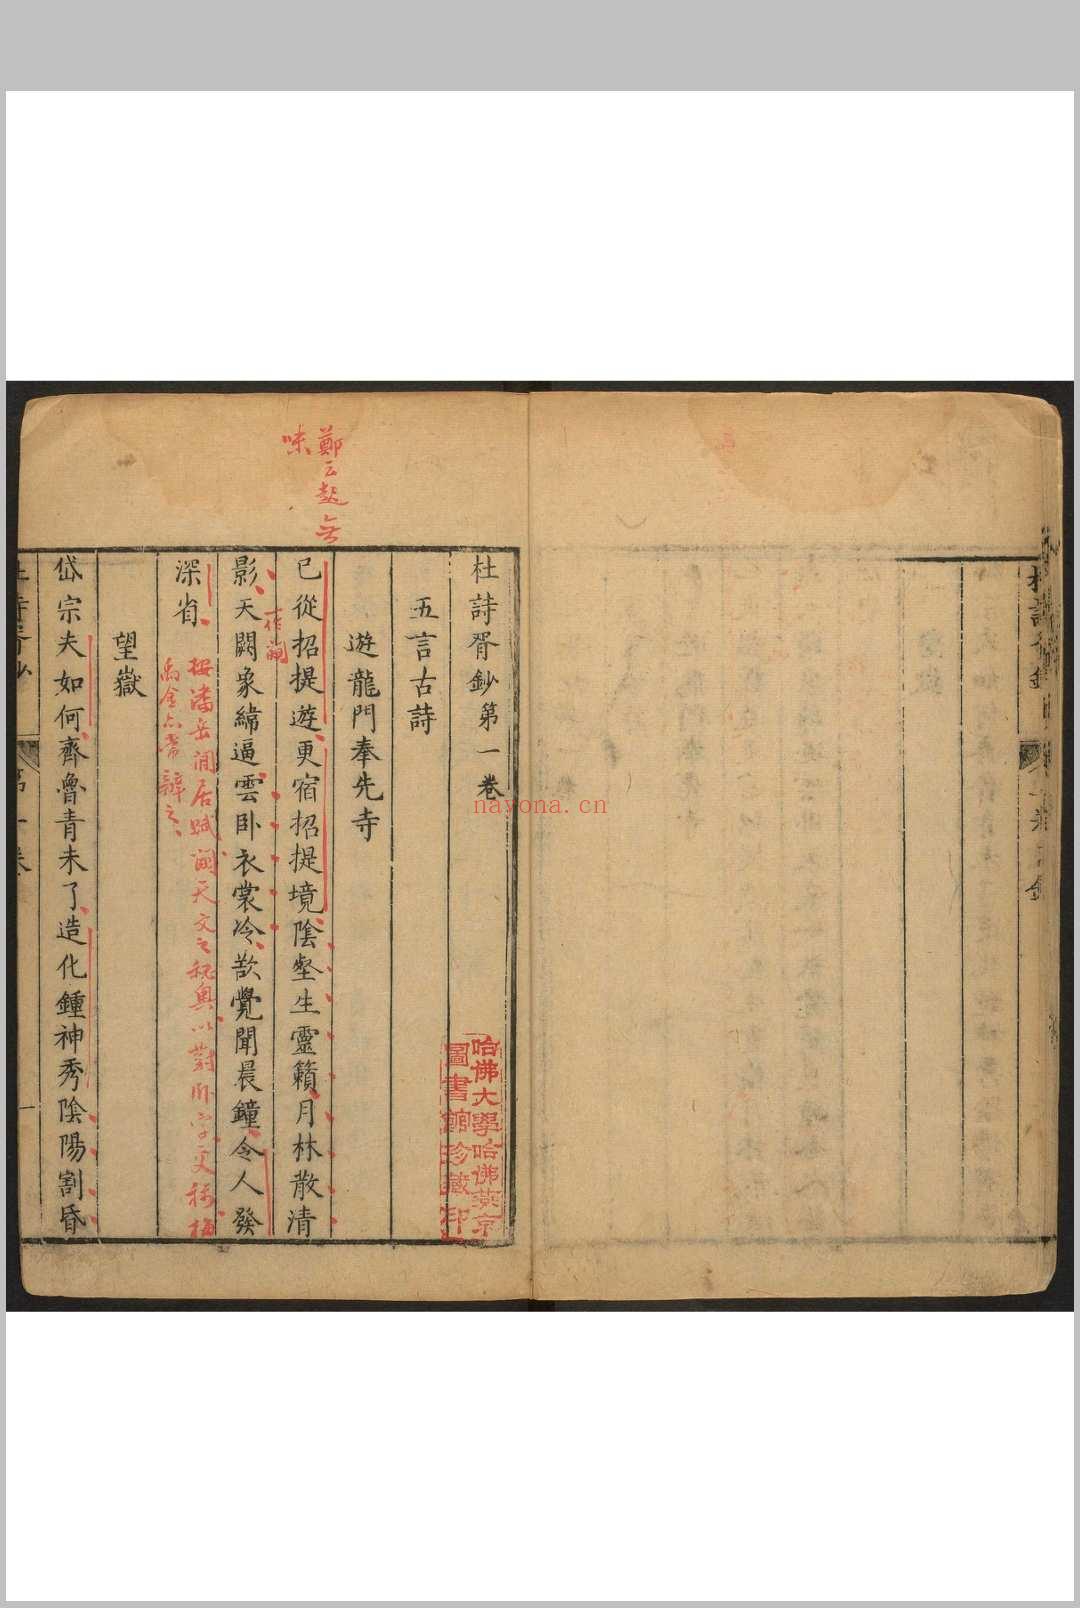 杜詩胥鈔第一卷
五言古詩
遊龍門奉先寺
已從招提遊更宿招提境陰壑生靈籟月林散清
影天闕象緯逼雲卧衣裳冷欲覺聞晨鐘令人發
深省
望嶽
岱宗夫如何齊魯青未了造化鍾神秀陰陽割昏
鄭云起無
味
作闚
按潘岳閒居賦闚天文之秘奧以對卧字更穩梅
禹金亦常辯之
哈佛大學哈佛燕京
圖書館珍藏印
第一卷
nayona.cn